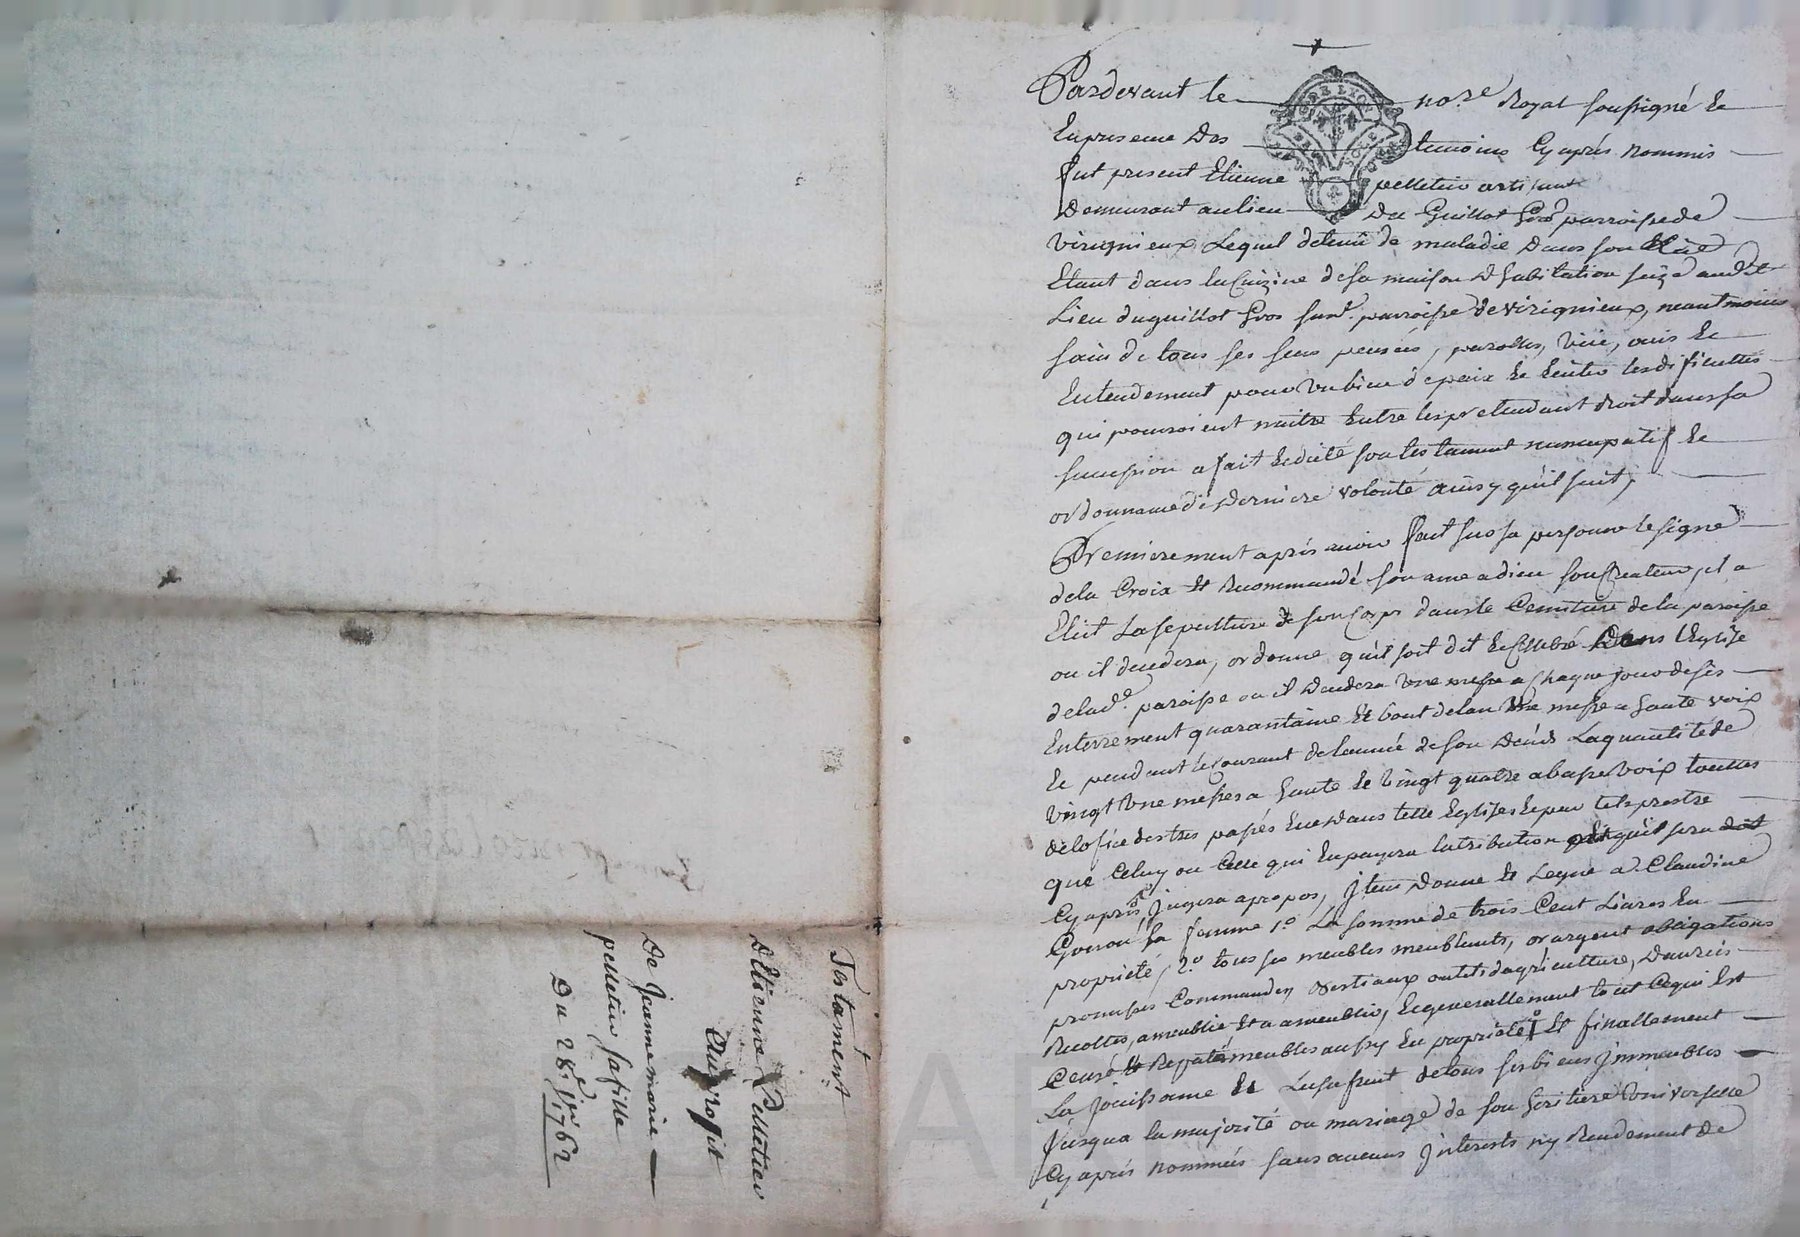 Pardevant le no.re Royal soussigné Ee
Enpresence Des temoins Cy aprés nommés
fut present Etienne pelletier artisant
Demeurant aulieu Du Guillot Gros parroisse de
virignieux Lequel detenu de maladie Dans son
Etant dans la Cuizine de sa maison D habitation size audit
Lieu duguillot Gros susd.t parroisse de virignieux, neantmoins
sain de tous ses sens pensées, parolles, vüe, ouis Ee
Entendement pour un bien de paix Ee Eviter les dificultes
qui pouroient naitre Entre les pretendant droit dans sa
succession a fait Ee dicté son testament nuncupatif Ee
ordonnance de Derniere volonté ainsy quil suit,
Premierement aprés avoir fait sur sa personne le signe
dela Croix Et Recommandé son ame a dieu son Createur, il a
Elut La sepulture de son Corps dans le Cemitiere de la paroisse
ou il decedera, ordonne quil soit dit Ee Celebré Dans l'Eglise
de lad.e paroisse ou il Decedera une messe a Chaque jour de ses
Enterrement quarantaine Et bout de lan Une messe a haute voix
Ee pendant le Courant de lannée de son Decéds La quantité de
vingt Une messes a haute Ee vingt quatre a basse voix toutes
de lofice des tres passés Ee Dans telle Eglises Ee par tels prestre
que Celuy ou Celle qui En payera la tribution quil sera
Cy aprés jugera apropos, Item Donne Et Legue a Claudine
sa femme 1.o La somme de trois Cent Livres En
propriété, 2.o tous ses meubles meublants, or argent obligations
promesses Commandes Bestiaux outils dagriculture, Danrées
Recoltes, ameublie Et a ameublir, Ee generallement tout Ce qui Est
Censé Et Reputé meubles aussy En propriété Et finallement
La jouissance Ee L'usufruit de tous ses biens jmmeubles
jusqua la majorité ou mariage de son heritiere Universelle
Cy aprés nommée sans aucuns jnterests ny Rendement de
Testament
D'Etienne Pelletier
Au profit
De Jeanne marie
pelletier sa fille
Du 28.e 1762